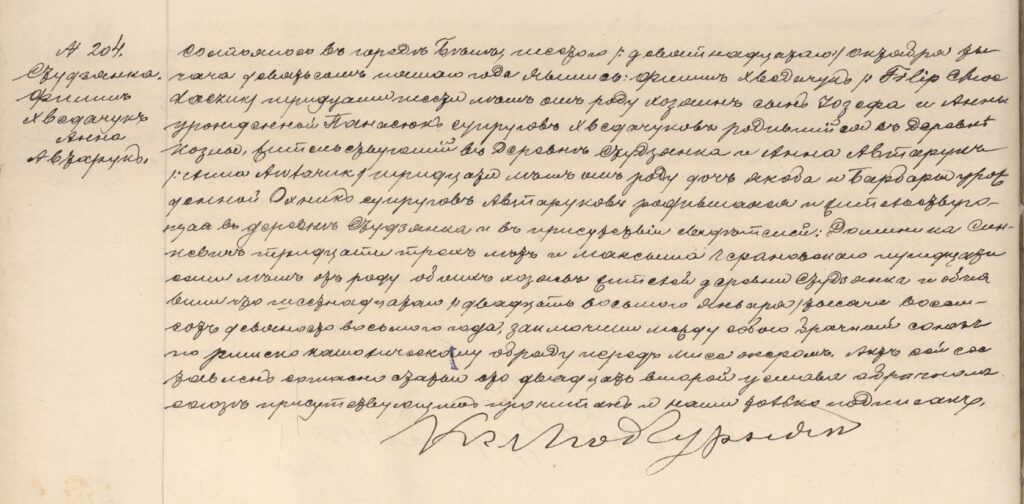 № 204.
Студзянка.
Филипъ
Хведачукъ
Анна
Автарукъ.
Состоялось въ городѣ Бѣлой шестого /: девятнадцатаго / октября ты-
сяча девятьсотъ года явились: Филипъ Хведачукъ /: Filip
тридцати шести лѣтъ отъ роду хозяинъ сынъ Іозефа и Анны
урожденной Панасюкъ супруговъ Хведачуковъ родившійся въ деревнѣ
жительствующій въ деревнѣ Студзянка и Анна Автарукъ
/: тридцати лѣтъ отъ роду дочь Якова и Барбары урож
денной супруговъ Автаруковъ родившаяся и жительствую-
щая въ деревнѣ Студзянка и въ присутствіи свидѣтелей: Доминика
тридцати трехъ лѣтъ и Максима тридцати
семи лѣтъ отъ роду обоихъ хозяевъ жителей деревни Студзянка и объя
вили что шестнадцатаго /: двадцать восьмого января / тысяча восемь-
сотъ девяносто восьмого года, заключили между собою брачный союзъ
по римско католическому обряду передъ миссіонеромъ. Актъ сей сос
тавленъ согласно статьи сто двадцать второй устава о брачномъ
союзѣ присутствующимъ прочитанъ и нами только подписанъ.